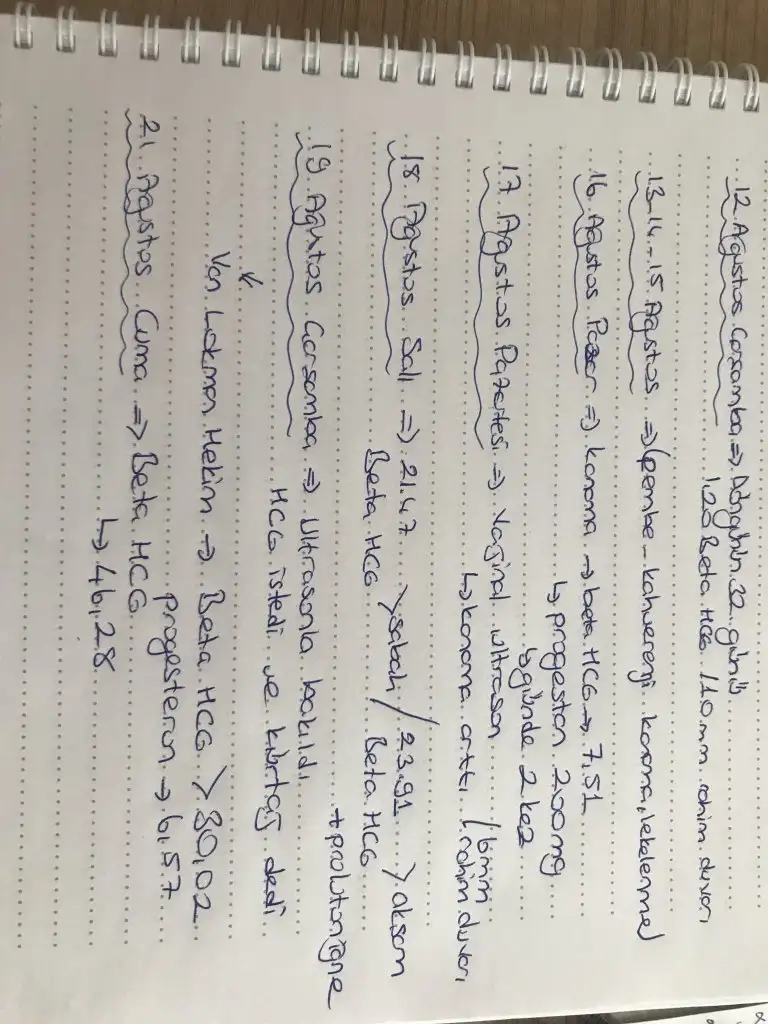 12 Ağustos Çarşamba => Döngünün 32. günü
1,20 Beta HCG 110mm rahim duvarı
13-14-15 Ağustos => (pembe-kahverengi kanama, lekelenme)
16 Ağustos Pazar => kanama → beta HCG → 7,51
↳ progestan 200mg
↳ günde 2 kez
17 Ağustos Pazartesi => Vaginal ultrason
↳ kanama arttı / 6mm rahim duvarı
18 Ağustos Salı => 21.47 > sabah / 23.91 > akşam
Beta HCG Beta HCG
+ proluton iğne
19 Ağustos Çarşamba => Ultrasonla bakıldı
HCG istedi ve kürtaj dedi
↓
Van Lokman Hekim → Beta HCG > 30,02
progesteron → 6,57
21 Ağustos Cuma => Beta HCG
↳ 46,28